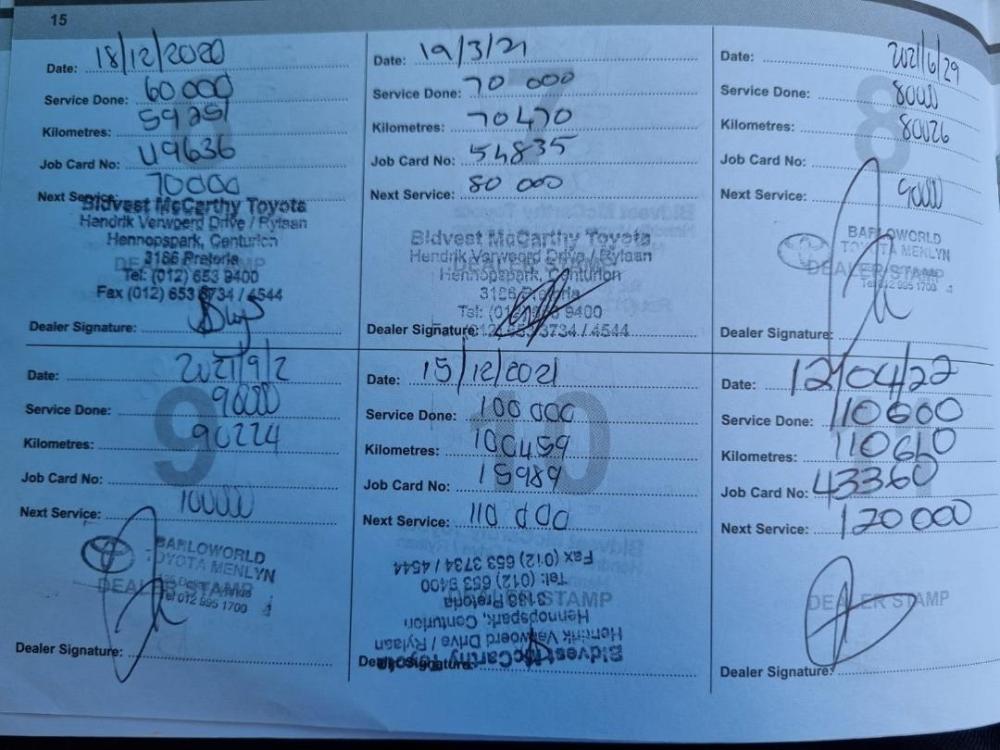 15
Date: 18/12/2020
Service Done: 60 000
Kilometres: 59251
Job Card No: 49636
Next Service: 70000
Bidvest McCarthy Toyota
Hendrik Verwoerd Drive / Rylaan
Hennopspark, Centurion
3186 Pretoria
Tel: (012) 653 9400
Fax (012) 653 3734 / 4544
Dealer Signature:
Date: 19/3/21
Service Done: 70 000
Kilometres: 70470
Job Card No: 54835
Next Service: 80 000
Bidvest McCarthy Toyota
Hendrik Verwoerd Drive / Rylaan
Hennopspark, Centurion
3186 Pretoria
Tel: (012) 653 9400
Dealer Signature: (012) 653 3734 / 4544
8
Date: 2021/6/29
Service Done: 80000
Kilometres: 80026
Job Card No:
Next Service: 90000
BARLOWORLD
TOYOTA MENLYN
DEALER STAMP
Tel 012 995 1700
Dealer Signature:
9
Date: 2021/9/2
Service Done: 90000
Kilometres: 90224
Job Card No:
Next Service: 100000
BARLOWORLD
TOYOTA MENLYN
DEALER STAMP
Tel 012 995 1700
Dealer Signature:
10
Date: 15/12/2021
Service Done: 100 000
Kilometres: 100459
Job Card No: 15989
Next Service: 110 000
Fax (012) 653 3734 / 4544
Tel: (012) 653 9400
3186 Pretoria
STAMP
Hennopspark, Centurion
Hendrik Verwoerd Drive / Rylaan
Bidvest McCarthy Toyota
Dealer Signature:
Date: 12/04/22
Service Done: 110600
Kilometres: 110660
Job Card No: 43360
Next Service: 120 000
DEALER STAMP
Dealer Signature: